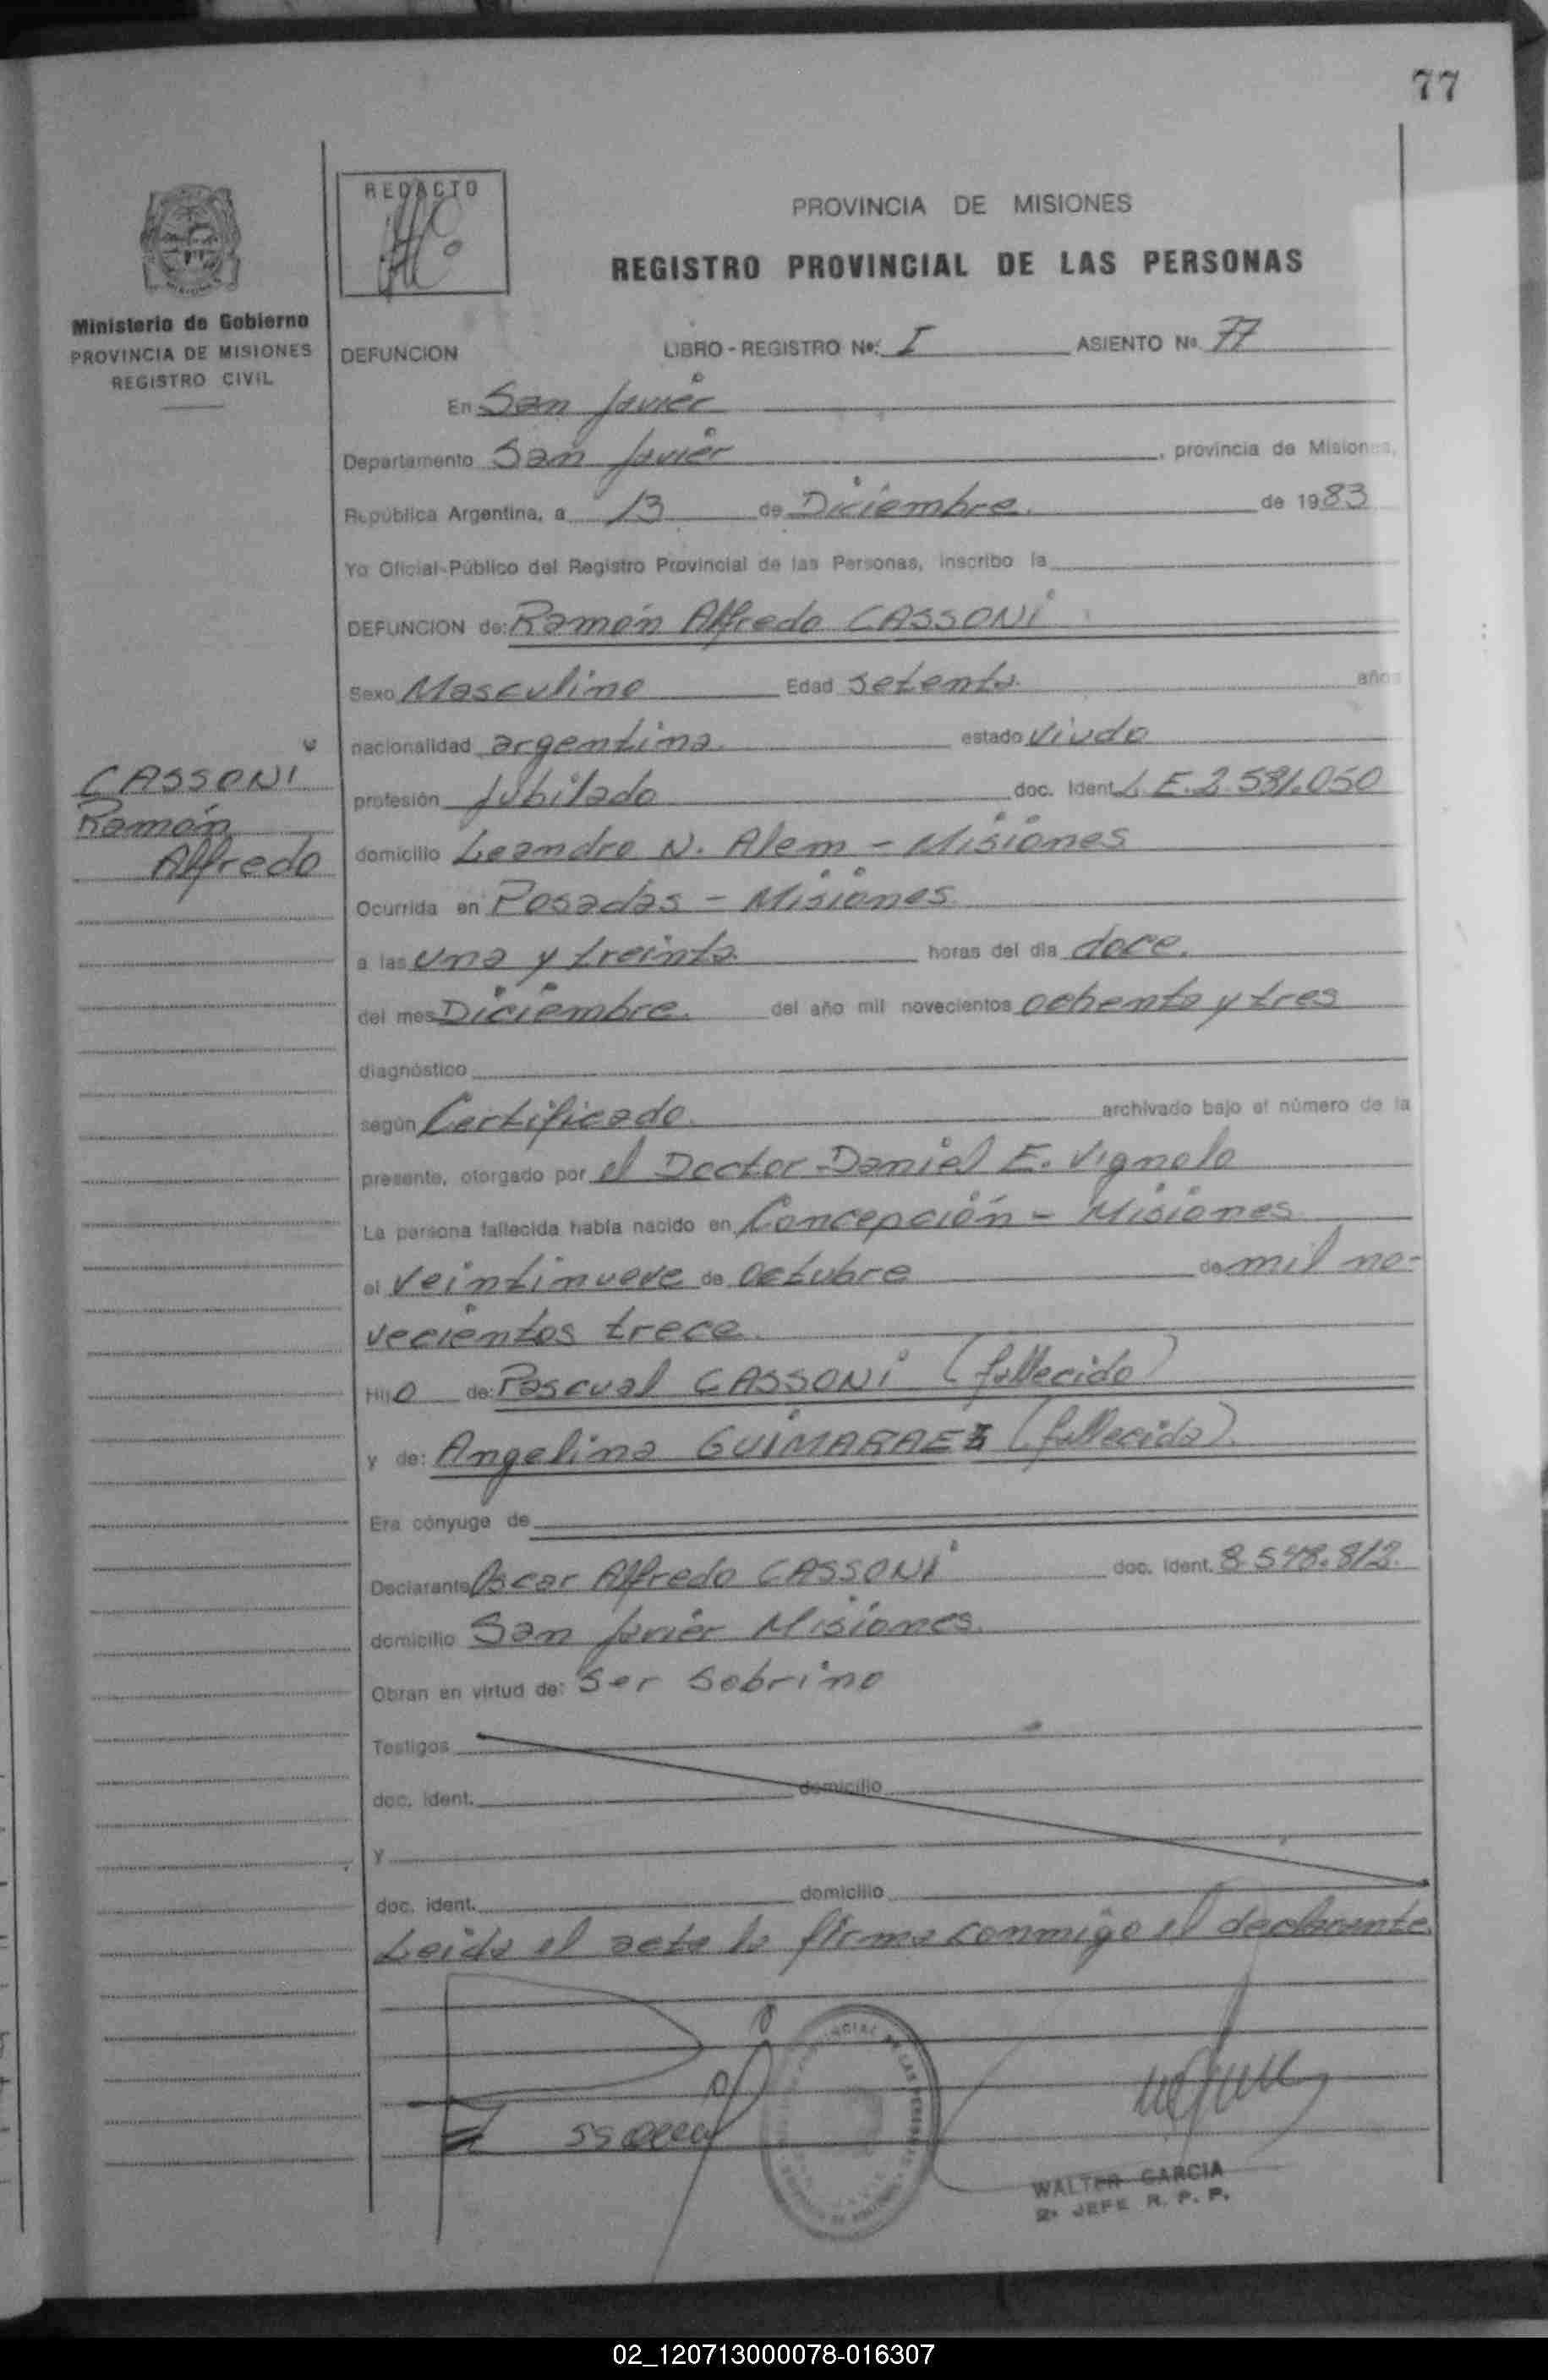 77
REDACTO
PROVINCIA DE MISIONES
REGISTRO PROVINCIAL DE LAS PERSONAS
Ministerio de Gobierno
PROVINCIA DE MISIONES
REGISTRO CIVIL
DEFUNCION LIBRO - REGISTRO Nº: I ASIENTO Nº 77
En San Javier
Departamento San Javier, provincia de Misiones,
República Argentina, a 13 de Diciembre. de 1983
Yo Oficial Público del Registro Provincial de las Personas, inscribo la
DEFUNCION de: Ramón Alfredo CASSONI
Sexo Masculino Edad setenta años
nacionalidad argentina. estado viudo
CASSONI
Ramón
Alfredo
profesión Jubilado doc. Ident. L.E. 2.581.050
domicilio Leandro N. Alem - Misiones
Ocurrida en Posadas - Misiones
a las una y treinta. horas del día doce.
del mes Diciembre. del año mil novecientos ochenta y tres
diagnóstico
según Certificado. archivado bajo el número de la
presente, otorgado por el Doctor Daniel E. Vignolo
La persona fallecida había nacido en Concepción - Misiones
el veintinueve de Octubre de mil no-
vecientos trece
Hijo de: Pascual CASSONI (fallecido)
y de: Angelina GUIMARAES (fallecida).
Era cónyuge de
Declarante Oscar Alfredo CASSONI doc. Ident. 8.548.812.
domicilio San Javier Misiones.
Obran en virtud de: Ser Sobrino
Testigos
doc. ident. domicilio
y
doc. ident. domicilio
Leida el acta la firma conmigo el declarante.
WALTER GARCIA
2º JEFE R. P. P.
02_120713000078-016307